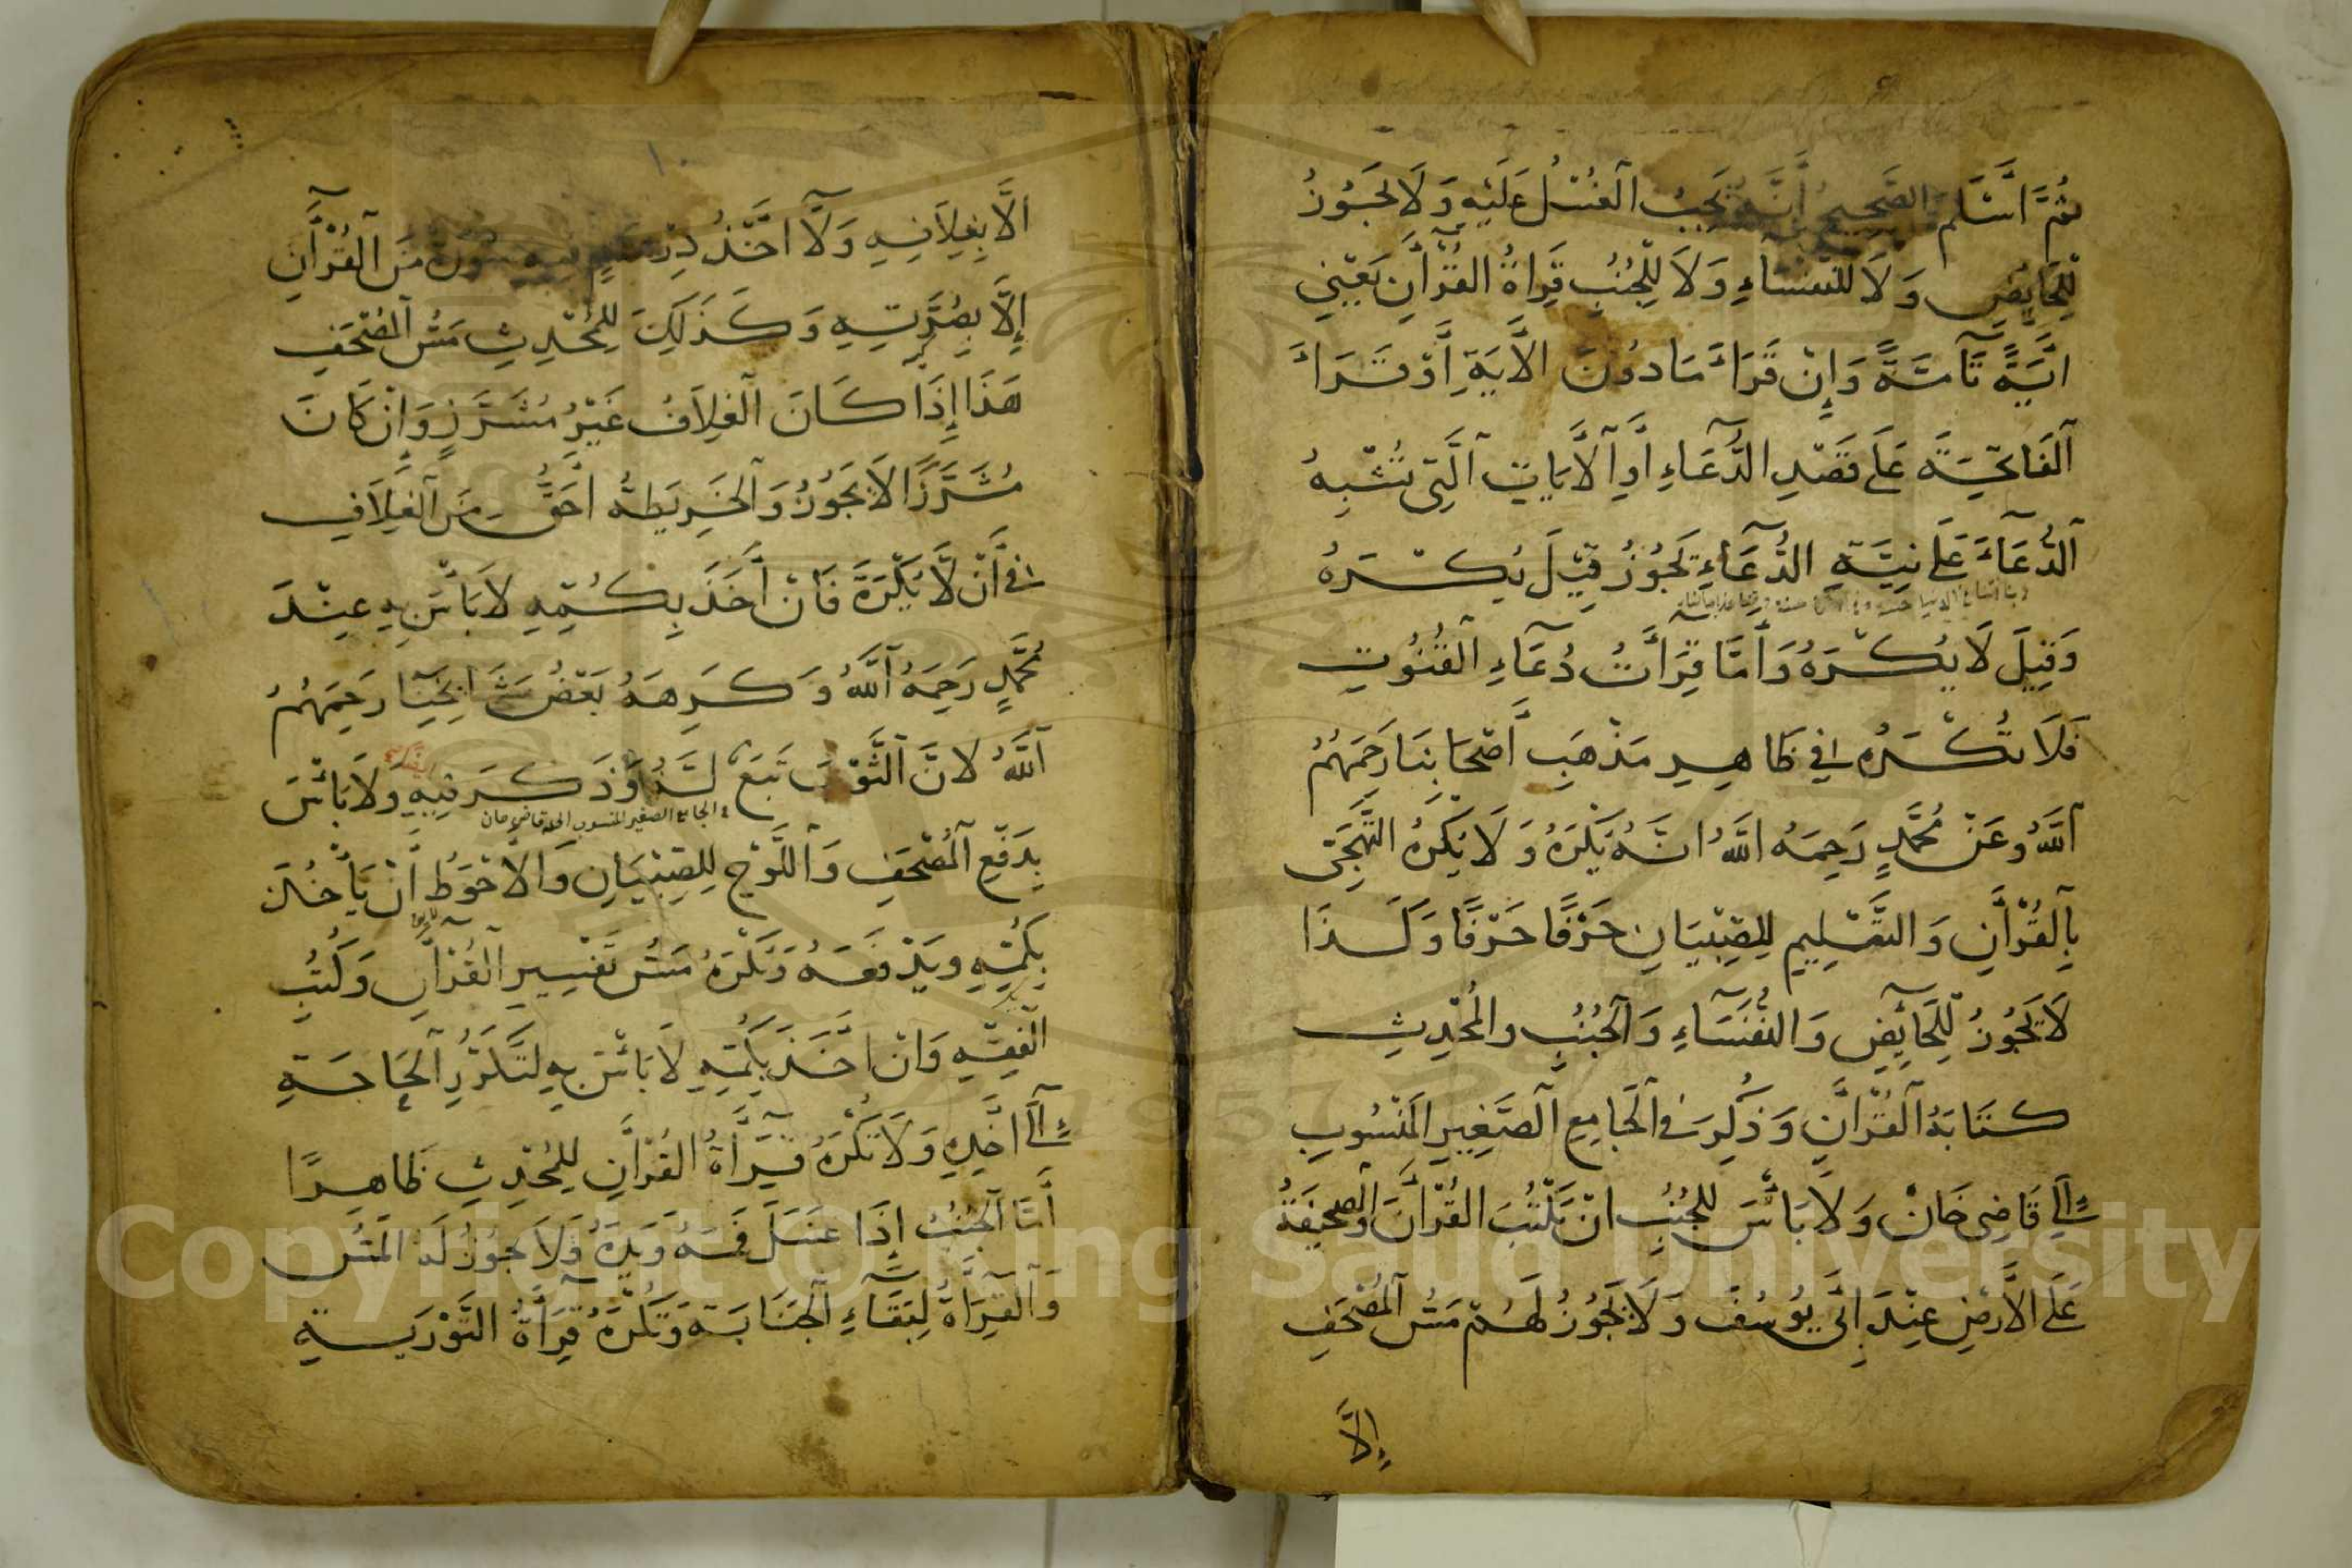 ثُمَّ اَسْلَم الصَّحِيحُ اَنَّهُ يَجِبُ الْغُسْلُ عَلَيْهِ وَلَا يَجُوزُ
لِلْحَايِضِ وَلَا لِلنُّفَسَاءِ وَلَا لِلْجُنُبِ قِرَاةُ الْقُرْاٰنِ يَعْنِي
اٰيَةً تَآمَّةً وَاِنْ قَرَاَ مَا دُونَ الْاٰيَةِ اَوْ قَرَاَ
الْفَاتِحَةَ عَلَى قَصْدِ الدُّعَاءِ اَوِ الْاٰيَاتِ الَّتِى تُشْبِهُ
الدُّعَآءَ عَلَى نِيَّةِ الدُّعَآءِ يَجُوزُ قِيْلَ يُكْرَهُ
ربنا اتنا في الدنيا حسنة وفي الاخرة حسنة وقنا عذاب النار
وَقِيلَ لَا يُكْرَهُ وَاَمَّا قِرَاَتُ دُعَآءِ الْقُنُوتِ
فَلَا تُكْرَهُ فِي ظَاهِرِ مَذْهَبِ اَصْحَابِنَا رَحِمَهُمُ
اللّٰهُ وَعَنْ مُحَمَّدٍ رَحِمَهُ اللّٰهُ اَنَّهُ يُكْرَهُ وَلَا يُكْرَهُ التَّهَجِّى
بِالْقُرْاٰنِ وَالتَّعْلِيمِ لِلصِّبْيَانِ حَرْفًا حَرْفًا وَكَذَا
لَا يَجُوزُ لِلْحَآئِضِ وَالنُّفَسَآءِ وَالْجُنُبِ وَالْمُحْدِثِ
كِتَابَةُ الْقُرْاٰنِ وَذُكِرَ فِى الْجَامِعِ الصَّغِيرِ الْمَنْسُوبِ
اِلَى قَاضِى خَانْ وَلَا بَاْسَ لِلْجُنُبِ اَنْ يَكْتُبَ الْقُرْاٰنَ وَالصَّحِيفَةُ
عَلَى الْاَرْضِ عِنْدَ اَبِى يُوسُفَ وَلَا يَجُوزُ لَهُمْ مَسُّ الْمُصْحَفِ
اِلَّا
١٠
اِلَّا بِغِلَافِهِ وَلَا اَخْذُ دِرْهَمٍ فِيهِ سُورَةٌ مِنَ الْقُرْاٰنِ
اِلَّا بِصُرَّتِهِ وَكَذٰلِكَ لِلْمُحْدِثِ مَسُّ الْمُصْحَفِ
هَذَا اِذَا كَانَ الْغِلَافُ غَيْرُ مُشَرَّزٍ وَاِنْ كَانَ
مُشَرَّزًا لَا يَجُوزُ وَالْخَرِيطَةُ اَحَقُّ مِنَ الْغِلَافِ
فِى اَنْ لَا يُكْرَهَ فَاِنْ اَخَذَ بِكُمِّهِ لَا بَاْسَ بِهِ عِنْدَ
مُحَمَّدٍ رَحِمَهُ اللّٰهُ وَكَرِهَهُ بَعْضُ مَشَايِخِنَا رَحِمَهُمُ
اللّٰهُ لِاَنَّ الثَّوْبَ تَبَعٌ لَهُ وَذَكَرَ فِيهِ وَلَا بَاْسَ
في الجامع الصغير المنسوب الى قاضى خان
بِدَفْعِ الْمُصْحَفِ وَاللَّوْحِ لِلصِّبْيَانِ وَالْاَحْوَطُ اَنْ يَاْخُذَ
بِكُمِّهِ وَيَدْفَعَهُ وَيُكْرَهُ مَسُّ تَفْسِيرِ الْقُرْاٰنِ وَكُتُبِ
الْفِقْهِ وَاِنْ اَخَذَ بِكُمِّهِ لَا بَاْسَ بِهِ لِتَكَرُّرِ الْحَاجَةِ
اِلَى اَخْذِهِ وَلَا تُكْرَهُ قِرَاَةُ الْقُرْاٰنِ لِلْمُحْدِثِ ظَاهِرًا
اَمَّا الْجُنُبُ اِذَا غَسَلَ فَمَهُ وَيَدَهُ وَلَا يَجُوزُ لَهُ الْمَسُّ
وَالْقِرَاَةُ لِبَقَآءِ الْجَنَابَةِ وَتُكْرَهُ قِرَاَةُ التَّوْرَيةِ
Copyright © King Saud University
1957